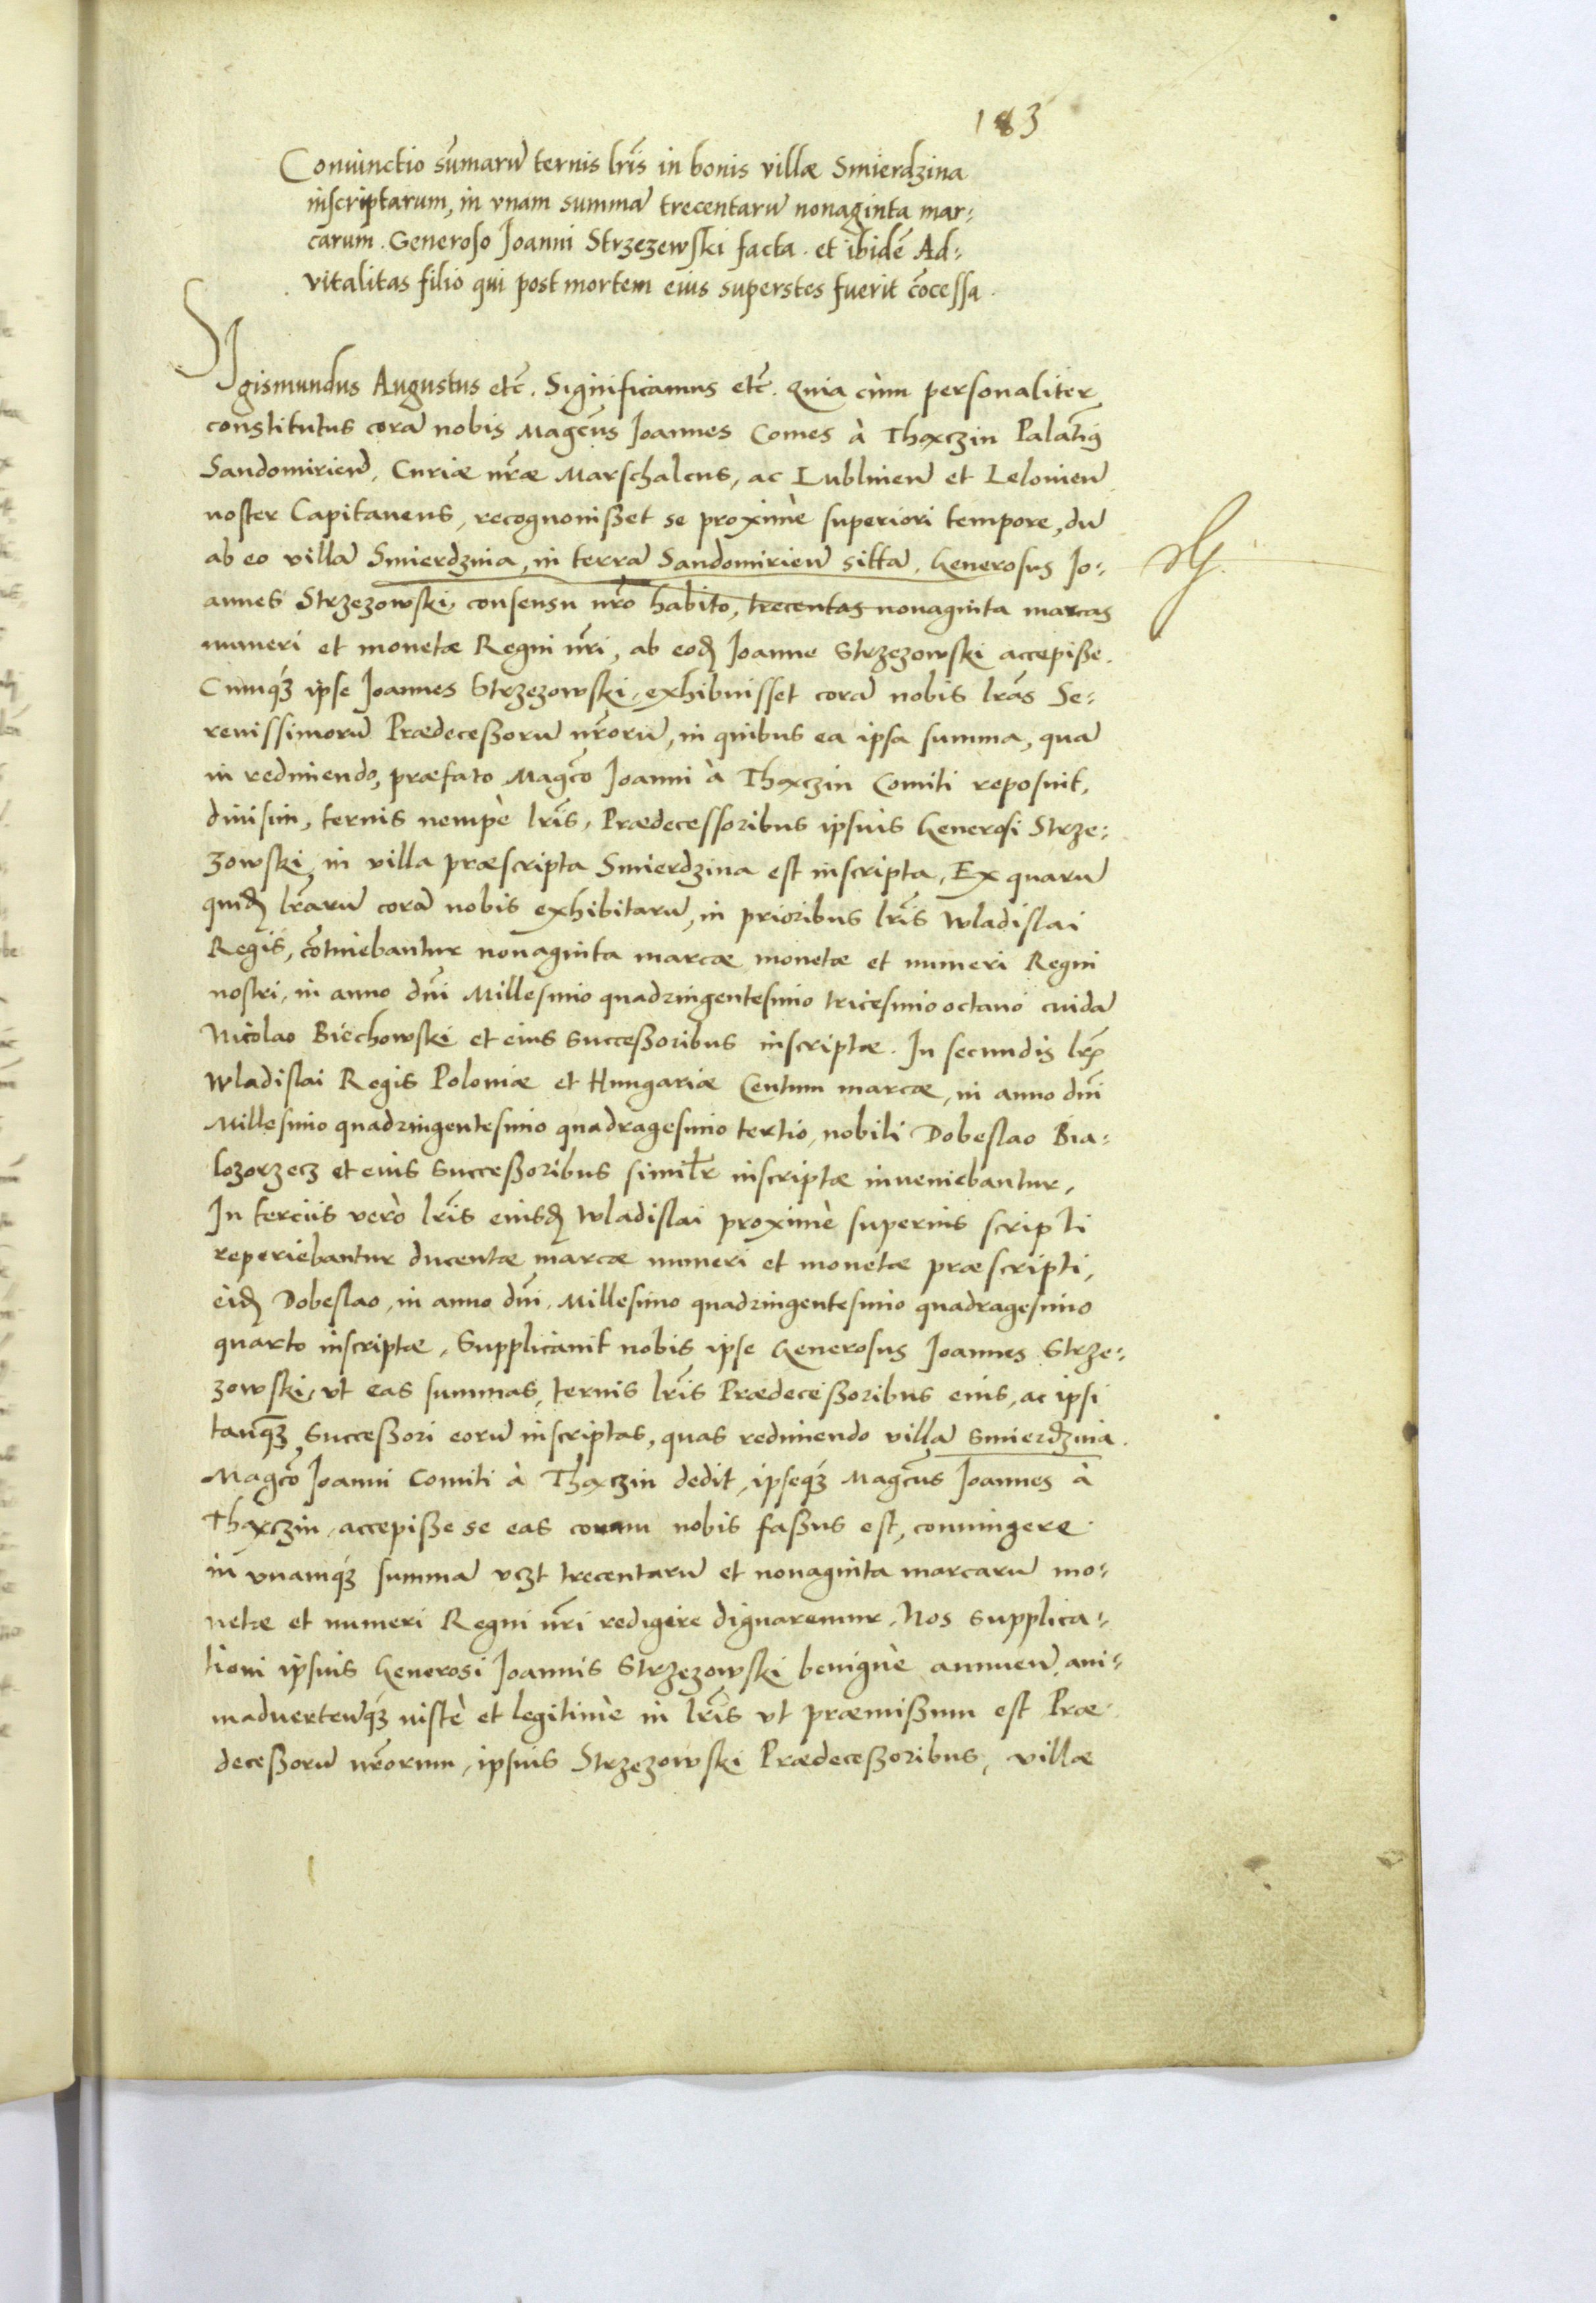 183
Conuinctio sum̃arũ ternis lr̃is in bonis villæ Smierdzina
inscriptarum, in vnam summã trecentarũ nonaginta mar:
carum. Generoso Joanni Strzezewski facta. et ibidẽ Ad:
vitalitas filio qui post mortem eius superstes fuerit cõcessa.
SIgismundus Augustus etc̃. Significamus etc̃. Quia cùm personaliter
constitutus corã nobis Magcũs Joannes Comes à Thaczin Palatĩ9
Sandomirieñ, Curiæ nr̃æ Marschalcus, ac Lublinieñ et Lelovieñ
noster Capitaneus, recognouisset se proximè superiori tempore, dũ
ab eo villã Smierdzina, in terra Sandomirieñ sittã, Generosus Jo:
annes Strzezowski, consensu nr̃o habito, trecentas nonaginta marcas
numeri et monetæ Regni nr̃i, ab eodꝫ Joanne Strzezowski accepisse.
Cumqꝫ ipse Joannes Strzezowski, exhibuisset corã nobis lrãs Se:
renissimorũ Prædecessorũ nr̃orũ, in quibus ea ipsa summa, quã
in redimendo, præfato Magcõ Joanni à Thaczin Comiti reposuit,
diuisim, ternis nempè lr̃is, Prædecessoribus ipsius Generosi Strze:
zowski, in villa præscripta Smierdzina est inscripta, Ex quarũ
quidꝫ lrãrũ corã nobis exhibitarũ, in prioribus lr̃is Wladislai
Regis, cõtinebantur nonaginta marcæ monetæ et numeri Regni
nostri, in anno dñi Millesimo quadringentesimo tricesimo octauo cuidã
Nicolao Biechowski et eius successoribus inscriptæ. In secundis lr̃is
Wladislai Regis Poloniæ et Hungariæ Centum marcæ, in anno dñi
Millesimo quadringentesimo quadragesimo tertio, nobili Dobeslao Bia:
lozorzecz et eius successoribus similr̃ inscriptæ inueniebantur,
In terciis verò lr̃is eiusdꝫ Wladislai proximè superius scripti
reperiebantur ducentæ marcæ numeri et monetæ præscripti,
eidꝫ Dobeslao, in anno dñi, Millesimo quadringentesimo quadragesimo
quarto inscriptæ, Supplicauit nobis ipse Generosus Joannes Strze:
zowski, vt eas summas, ternis lr̃is Prædecessoribus eius, ac ipsi
tanqꝫ successori eorũ inscriptas, quas redimendo villã Smierdzina.
Magcõ Joanni Comiti à Thaczin dedit, ipseqꝫ Magcũs Joannes à
Thaczin, accepisse se eas coram nobis fassus est, conuingere
in vnamqꝫ summã vczt trecentarũ et nonaginta marcarũ mo:
netæ et numeri Regni nr̃i redigere dignaremur. Nos supplica:
tioni ipsius Generosi Joannis Strzezowski benignè annueñ, ani:
maduerteñqꝫ iustè et legitimè in lr̃is vt præmissum est Præ
decessorũ nr̃orum, ipsius Strzezowski Prædecessoribus, villæ